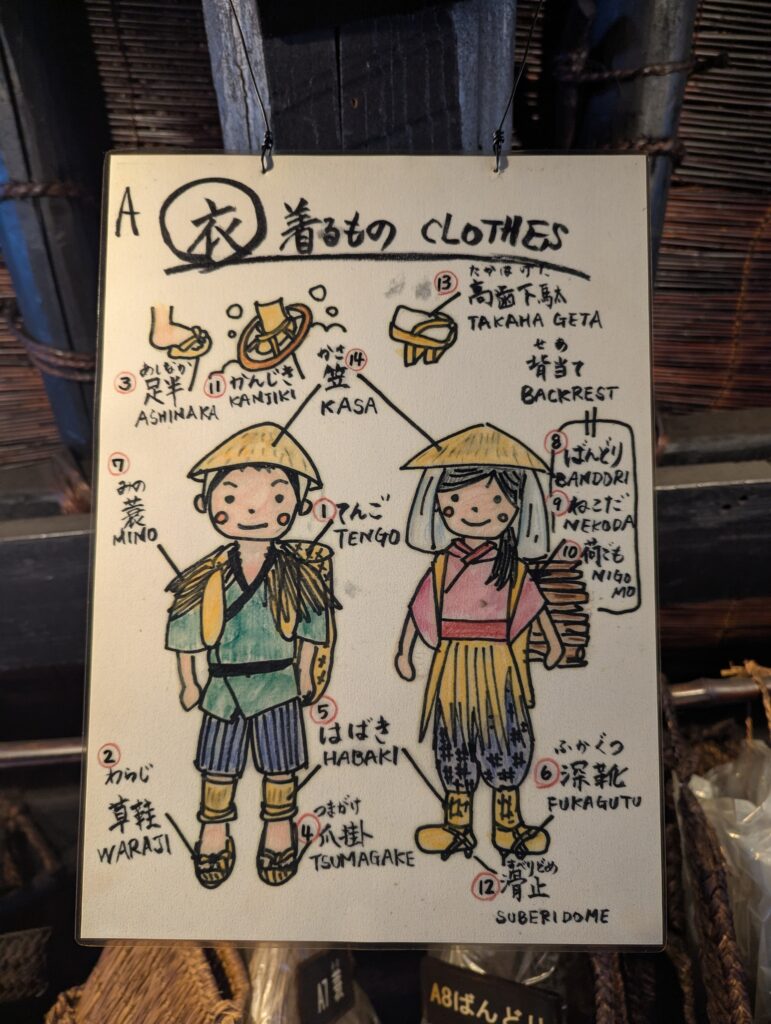 A 衣 着るもの CLOTHES
③ あしなか
足半
ASHINAKA
⑪ かんじき
KANJIKI
かさ ⑭
笠
KASA
⑬ たかはげた
高歯下駄
TAKAHA GETA
せあ
背当て
BACKREST
⑧ ばんどり
BANDORI
⑨ ねこだ
NEKODA
⑩ 荷ごも
NIGO
MO
⑦
みの
蓑
MINO
① てんご
TENGO
⑤
はばき
HABAKI
②
わらじ
草鞋
WARAJI
つまがけ
④ 爪掛
TSUMAGAKE
ふかぐつ
⑥ 深靴
FUKAGUTU
すべりどめ
⑫ 滑止
SUBERIDOME
A7 蓑
A8ばんどり